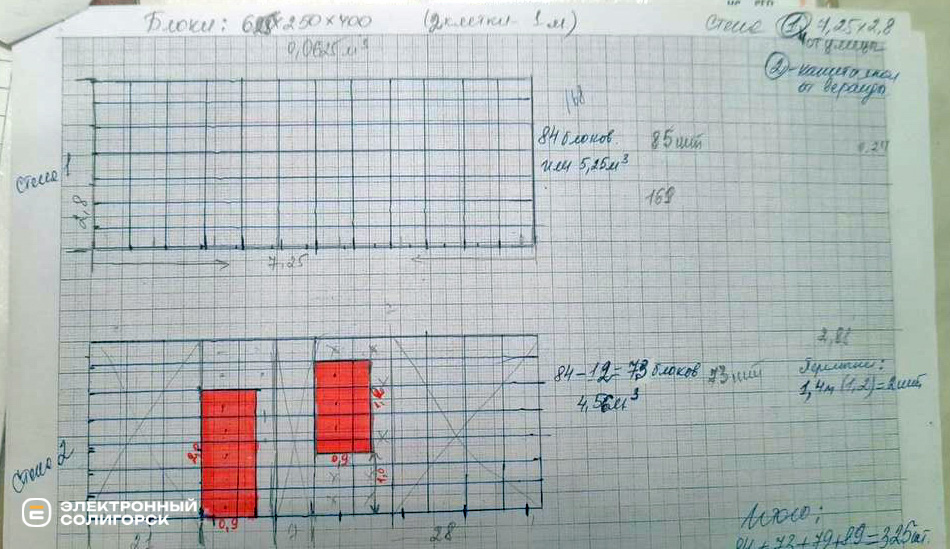 Блоки: 625×250×400 (2 клетки - 1м)
0,0625м³
Стена ① 7,25×2,8
от улицы
②
от веранды
168
84 блоков. 85 шт
или 5,25м³
0,24
169
Стена 1
2,8
7,25
2,82
84-12=73 блоков 73 шт
4,56м³
1,4м (1,2)=2шт
Стена 2
2,0
0,9
0,9
1,0
21
7
28
Итого:
84+73+79+89=325шт.
ЭЛЕКТРОННЫЙ
СОЛИГОРСК